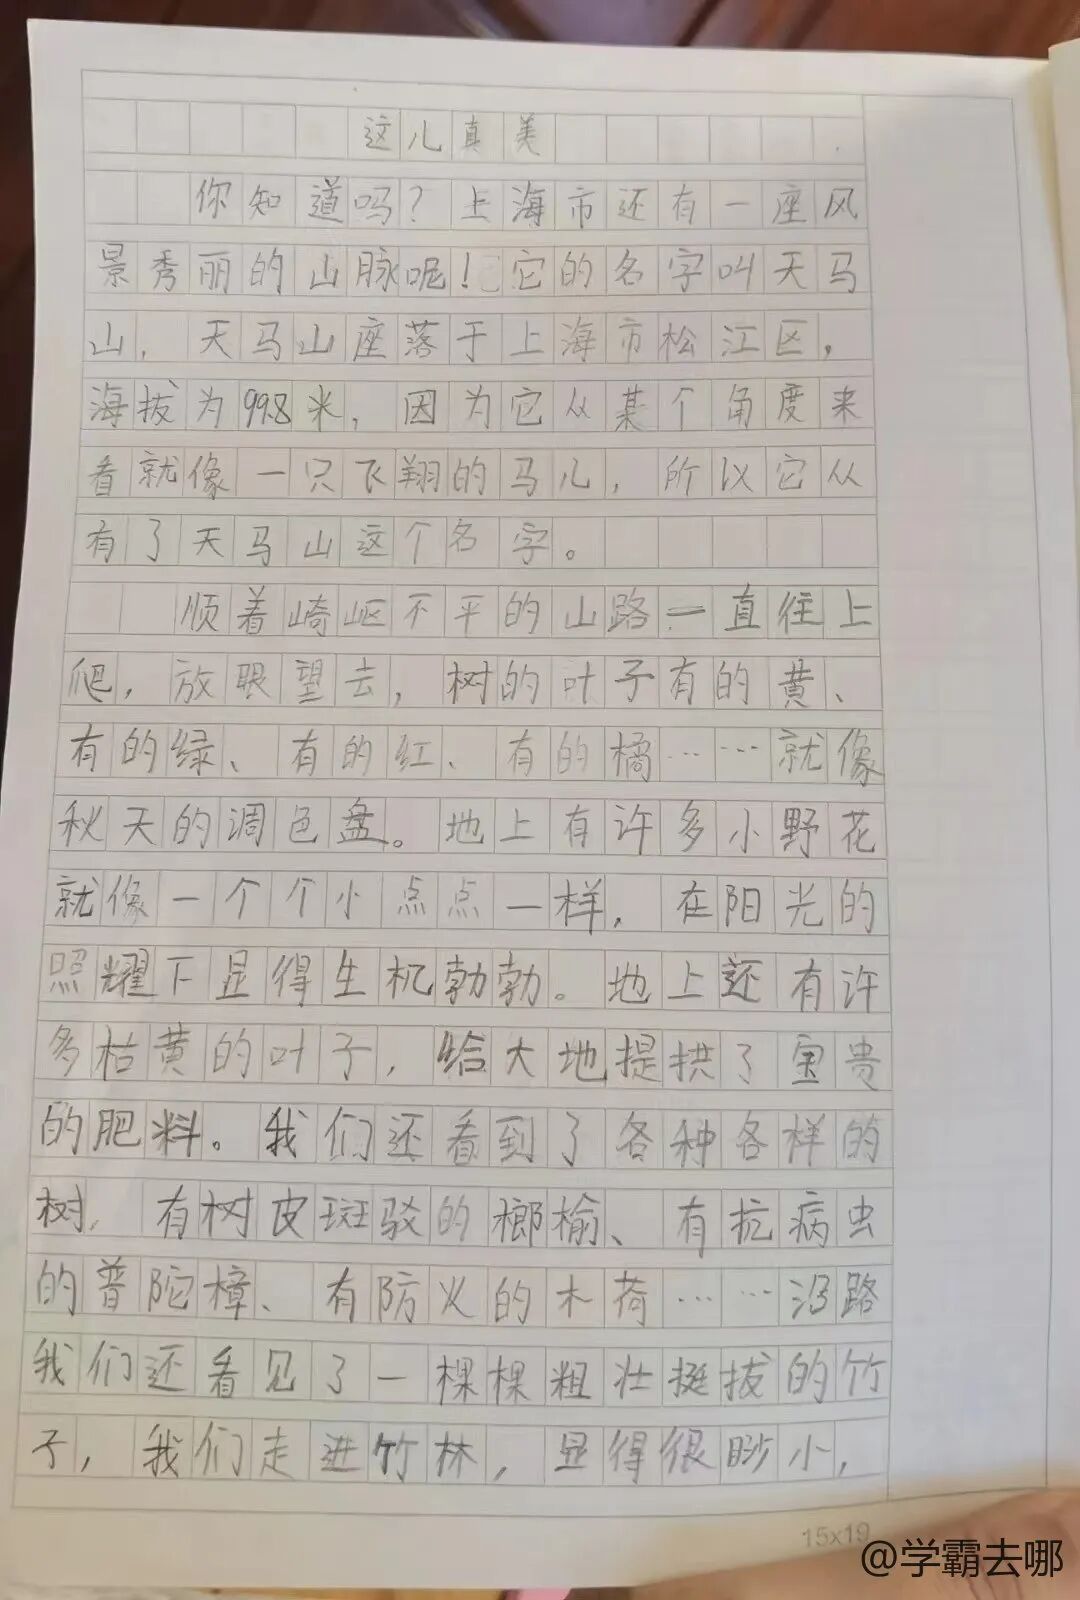 这儿真美
你知道吗?上海市还有一座风
景秀丽的山脉呢!它的名字叫天马
山,天马山座落于上海市松江区,
海拔为99.8米,因为它从某个角度来
看就像一只飞翔的马儿,所以它从
有了天马山这个名字。
顺着崎岖不平的山路一直往上
爬,放眼望去,树的叶子有的黄、
有的绿、有的红、有的橘……就像
秋天的调色盘。地上有许多小野花
就像一个个小点点一样,在阳光的
照耀下显得生机勃勃。地上还有许
多枯黄的叶子,给大地提拱了宝贵
的肥料。我们还看到了各种各样的
树,有树皮斑驳的榔榆、有抗病虫
的普陀樟、有防火的木荷……沿路
我们还看见了一棵棵粗壮挺拔的竹
子,我们走进竹林,显得很眇小,
15×19
@学霸去哪